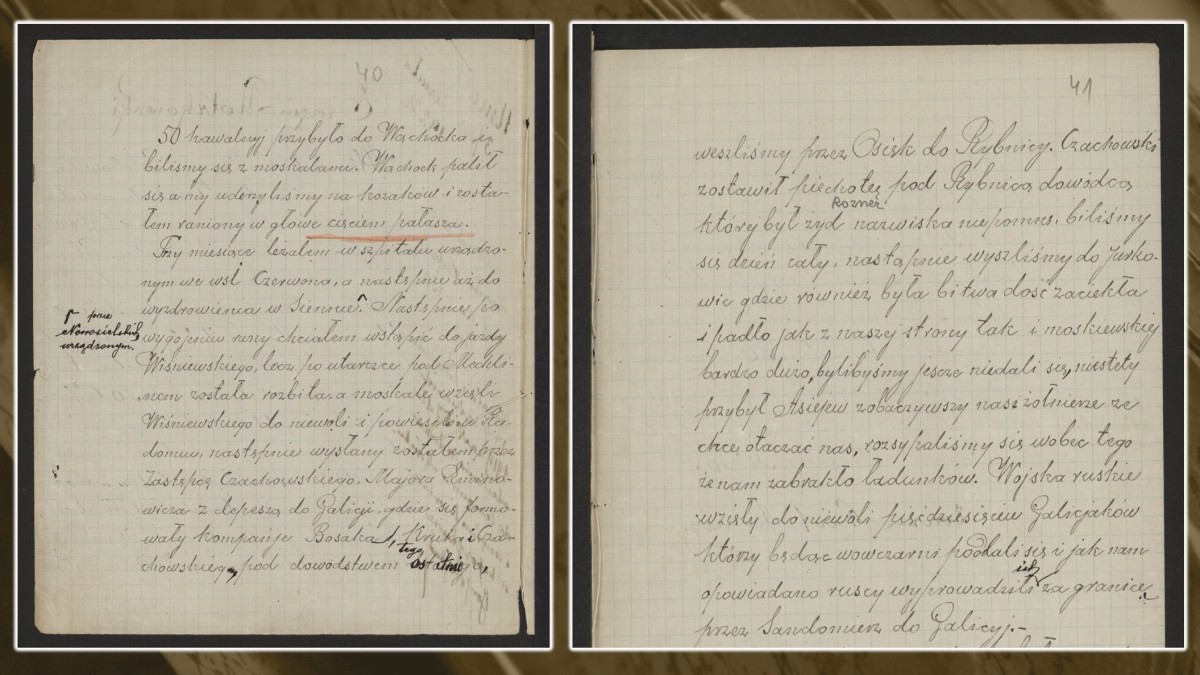 40
50 kawaleryj przybyło do Wąchocka i
biliśmy się z moskalami. Wąchock palił
się a my uderzyliśmy na kozaków i zosta-
łem raniony w głowę cięciem pałasza.
Trzy miesiące leżałem w szpitalu urządzo-
nym we wsi Czerwona, a następnie aż do
wyzdrowienia w Siennie. Następnie po
przez
Nowosielskich
urządzonym.
wygojeniu rany chciałem wstąpić do jazdy
Wiśniewskiego, lecz po utarczce pod
została rozbita, a moskale wzięli
Wiśniewskiego do niewoli i powieźli w Ra-
domiu, następnie wysłany zostałem przez
Zastępcę Czachowskiego, Majora
z depeszą do Galicji, gdzie się formo-
wały kompanije Bosaka, Kruka i Cza-
chowskiego, pod dowództwem tego ostatniego,
41
weszliśmy przez Osiek do Rybnicy. Czachowski
zostawił piechotę pod Rybnicą dowódcą
Rozner
który był żyd nazwiska niepomnę, biliśmy
się dzień cały, następnie wyszliśmy do Jurko-
wic gdzie również była bitwa dość zaciekła
i padło jak z naszej strony tak i moskiewskiej
bardzo dużo, bylibyśmy jescze niedali się, niestety
przybył Asiejew zobaczywszy nasi żołnierze ze
chcą otaczać nas, rozsypaliśmy się wobec tego
że nam zabrakło ładunków. Wojska ruskie
wzięły do niewoli pięćdziesięciu Galicjaków
którzy będąc owczarni poddali się i jak nam
opowiadano ruscy wyprowadzili ich za granicę
przez Sandomierz do Galicyj.-